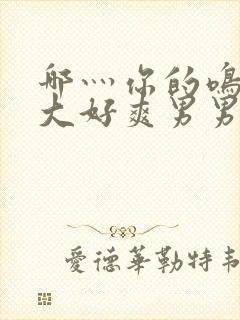 哪灬你的鸣
大好爽男男
愛德華勒特韦